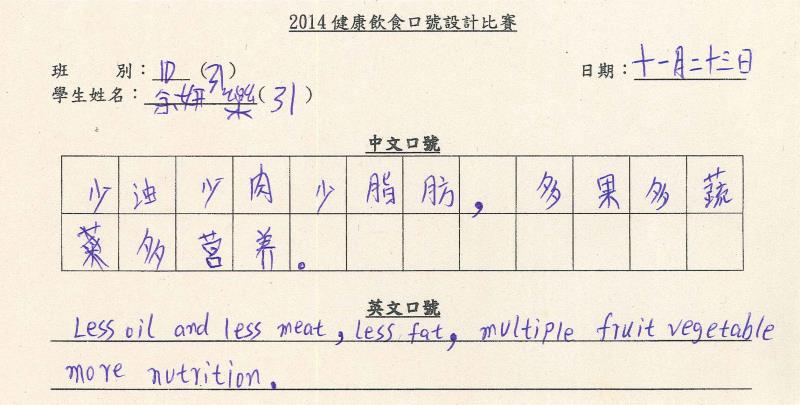 2014 健康飲食口號設計比賽
班 別：1D (31) 日期：十一月二十三日
學生姓名：余妍樂(31)
中文口號
少油少肉少脂肪，多果多蔬
菜多营养。
英文口號
Less oil and less meat, less fat, multiple fruit vegetable
more nutrition.